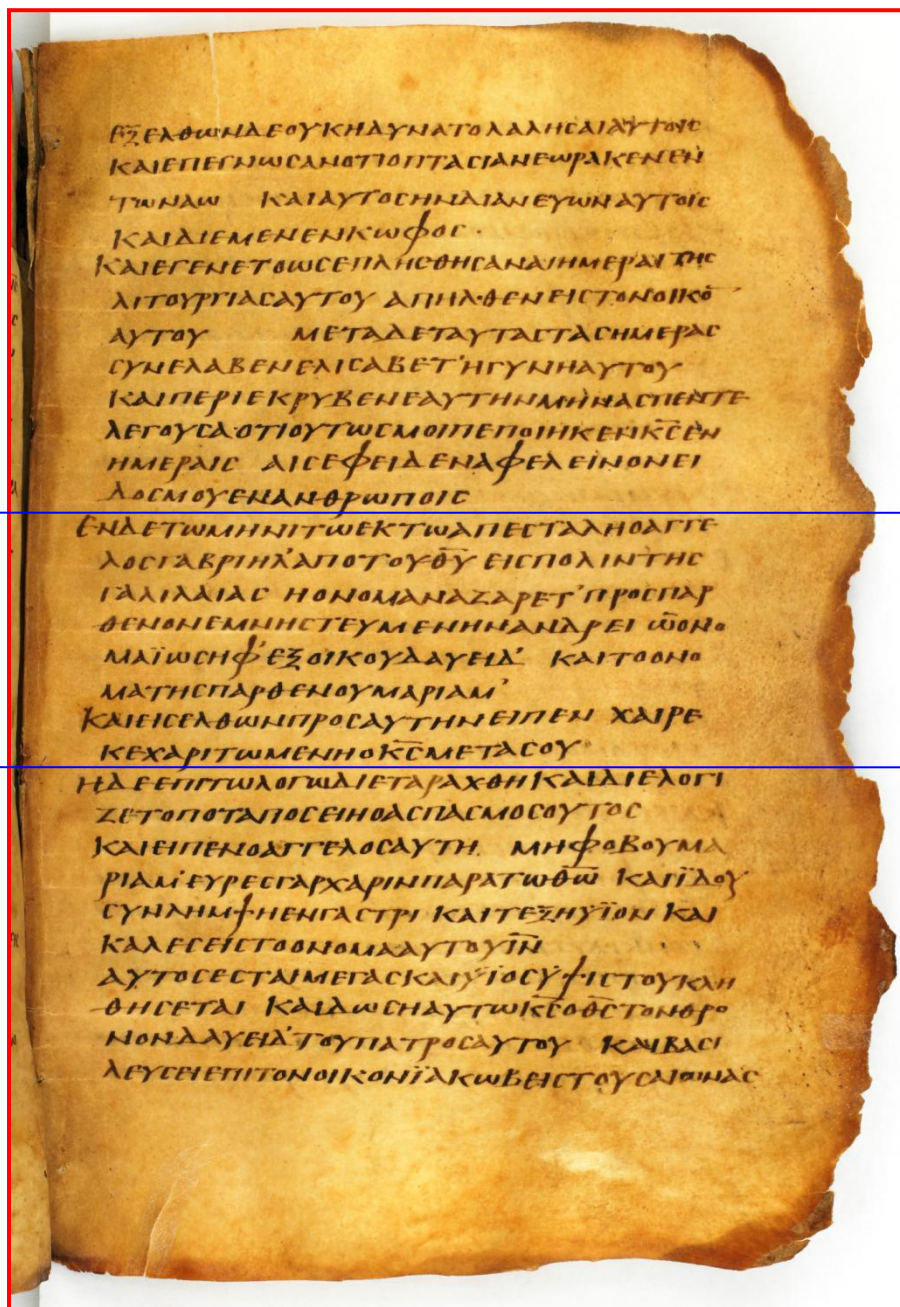 ΕΞΕΛΘΩΝΔΕΟΥΚΗΔΥΝΑΤΟΛΑΛΗΣΑΙΑΥΤΟΙΣ
ΚΑΙΕΠΕΓΝΩΣΑΝΟΤΙΟΠΤΑΣΙΑΝΕΩΡΑΚΕΝΕΝ
ΤΩΝΑΩ ΚΑΙΑΥΤΟΣΗΝΔΙΑΝΕΥΩΝΑΥΤΟΙΣ
ΚΑΙΔΙΕΜΕΝΕΝΚΩΦΟΣ·
ΚΑΙΕΓΕΝΕΤΟΩΣΕΠΛΗΣΘΗΣΑΝΑΙΗΜΕΡΑΙΤΗΣ
ΛΙΤΟΥΡΓΙΑΣΑΥΤΟΥ ΑΠΗΛΘΕΝΕΙΣΤΟΝΟΙΚΟ̄
ΑΥΤΟΥ ΜΕΤΑΔΕΤΑΥΤΑΣΤΑΣΗΜΕΡΑΣ
ΣΥΝΕΛΑΒΕΝΕΛΙΣΑΒΕΤ'ΗΓΥΝΗΑΥΤΟΥ
ΚΑΙΠΕΡΙΕΚΡΥΒΕΝΕΑΥΤΗΝΜΗΝΑΣΠΕΝΤΕ
ΛΕΓΟΥΣΑ·ΟΤΙΟΥΤΩΣΜΟΙΠΕΠΟΙΗΚΕΝΚ̅Σ̅ΕΝ
ΗΜΕΡΑΙΣ ΑΙΣΕΦΕΙΔΕΝΑΦΕΛΕΙΝΟΝΕΙ
ΔΟΣΜΟΥΕΝΑΝΘΡΩΠΟΙΣ
ΕΝΔΕΤΩΜΗΝΙΤΩΕΚΤΩΑΠΕΣΤΑΛΗΟΑΓΓΕ
ΛΟΣΓΑΒΡΙΗΛ'ΑΠΟΤΟΥΘ̅Υ̅ ΕΙΣΠΟΛΙΝΤΗΣ
ΓΑΛΙΛΑΙΑΣ ΗΟΝΟΜΑΝΑΖΑΡΕΤ'ΠΡΟΣΠΑΡ
ΘΕΝΟΝΕΜΝΗΣΤΕΥΜΕΝΗΝΑΝΔΡΕΙ ΩΟΝΟ
ΜΑΪΩΣΗΦ'ΕΞΟΙΚΟΥΔΑΥΕΙΔ' ΚΑΙΤΟΟΝΟ
ΜΑΤΗΣΠΑΡΘΕΝΟΥΜΑΡΙΑΜ'
ΚΑΙΕΙΣΕΛΘΩΝΠΡΟΣΑΥΤΗΝΕΙΠΕΝ ΧΑΙΡΕ
ΚΕΧΑΡΙΤΩΜΕΝΗΟΚ̅Σ̅ΜΕΤΑΣΟΥ
ΗΔΕΕΠΙΤΩΛΟΓΩΔΙΕΤΑΡΑΧΘΗΚΑΙΔΙΕΛΟΓΙ
ΖΕΤΟΠΟΤΑΠΟΣΕΙΗΟΑΣΠΑΣΜΟΣΟΥΤΟΣ
ΚΑΙΕΙΠΕΝΟΑΓΓΕΛΟΣΑΥΤΗ ΜΗΦΟΒΟΥΜΑ
ΡΙΑΜ'ΕΥΡΕΣΓΑΡΧΑΡΙΝΠΑΡΑΤΩΘ̅Ω̅ ΚΑΙΪΔΟΥ
ΣΥΝΛΗΜΨΗΕΝΓΑΣΤΡΙ ΚΑΙΤΕΞΗΥΪΟΝ ΚΑΙ
ΚΑΛΕΣΕΙΣΤΟΟΝΟΜΑΑΥΤΟΥΙ̅Ν̅
ΑΥΤΟΣΕΣΤΑΙΜΕΓΑΣΚΑΙΫΪΟΣΫΨΙΣΤΟΥΚΛΗ
ΘΗΣΕΤΑΙ ΚΑΙΔΩΣΗΑΥΤΩΚ̅Σ̅ΟΘ̅Σ̅ΤΟΝΘΡΟ
ΝΟΝΔΑΥΕΙΔ'ΤΟΥΠΑΤΡΟΣΑΥΤΟΥ ΚΑΙΒΑΣΙ
ΛΕΥΣΕΙΕΠΙΤΟΝΟΙΚΟΝΪΑΚΩΒΕΙΣΤΟΥΣΑΙΩΝΑΣ